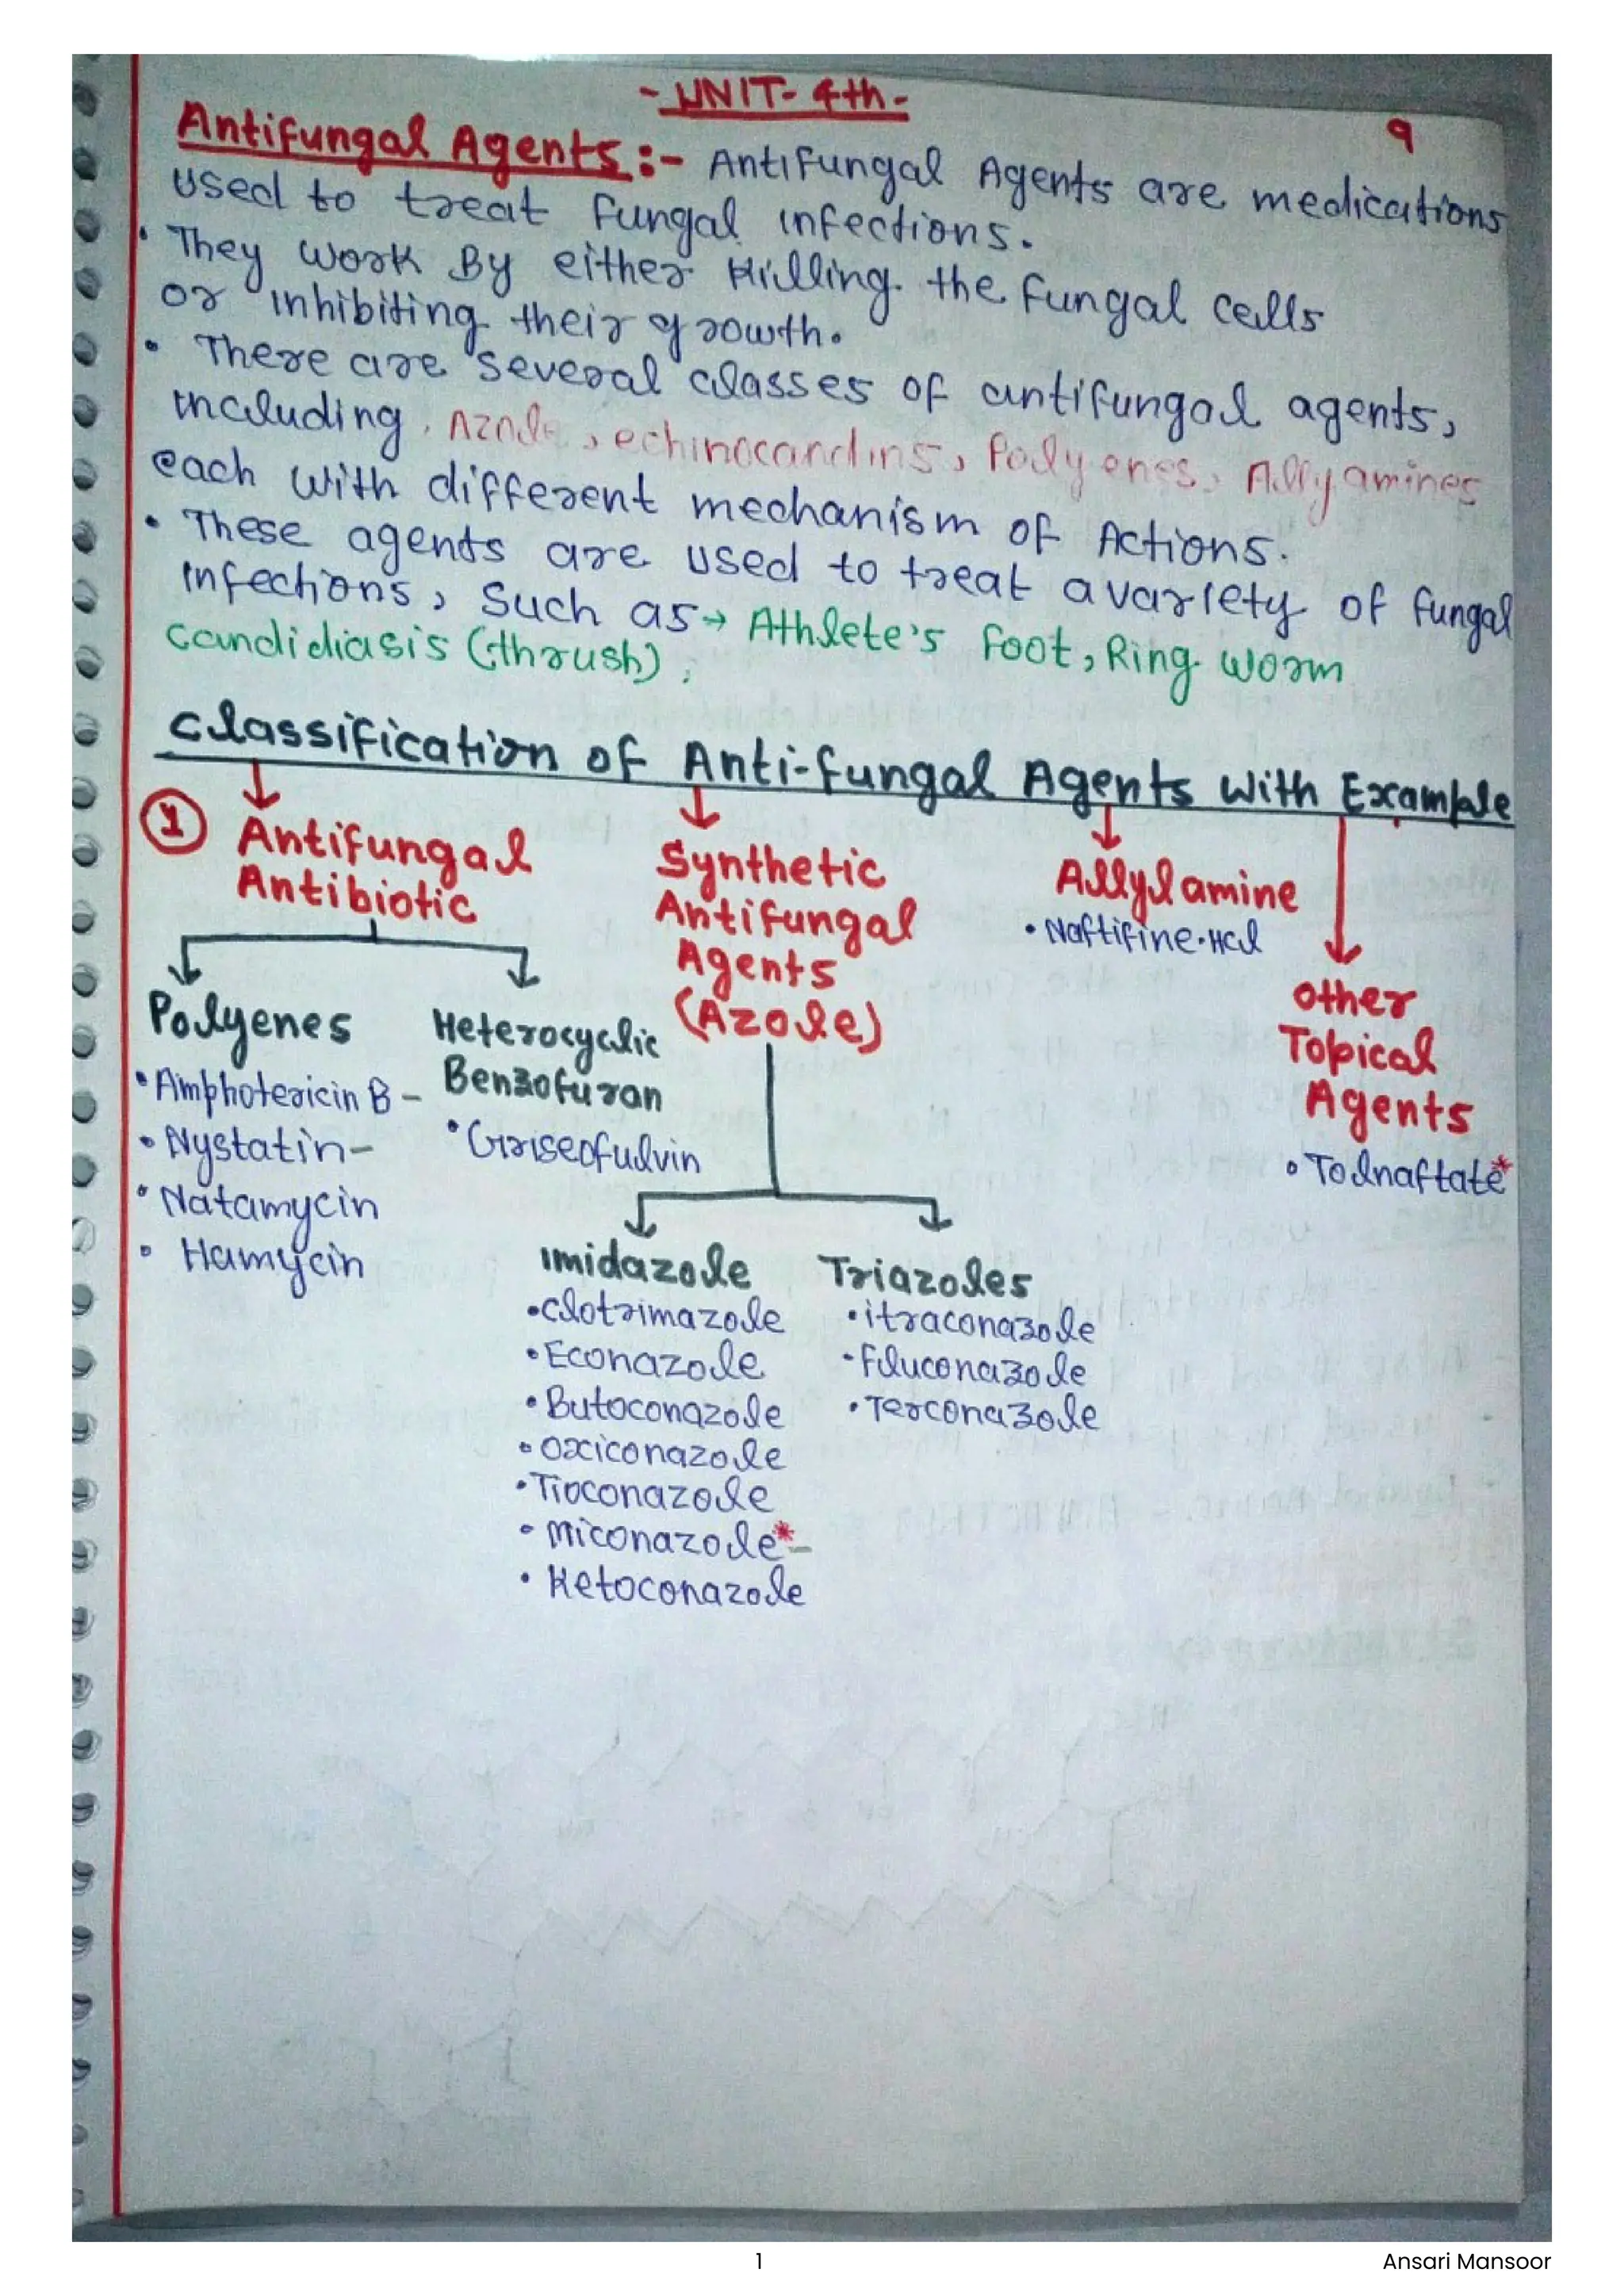 - UNIT- 4th -
9
Antifungal Agents :- Antifungal Agents are medications
used to treat fungal infections.
• They work By either killing the fungal cells
or inhibiting their growth.
• There are several classes of antifungal agents,
including, Azole, echinocandins, Polyenes, Allyamines
each with different mechanism of Actions.
• These agents are used to treat a variety of fungal
infections, such as → Athlete's foot, Ring worm
candidiasis (thrush),
Classification of Anti-fungal Agents with Example
1 Antifungal
Antibiotic
Polyenes
• Amphotericin B -
• Nystatin -
• Natamycin
• Hamycin
Heterocyclic
Benzofuran
• Griseofulvin
Synthetic
Antifungal
Agents
(Azole)
Imidazole
• clotrimazole
• Econazole
• Butoconazole
• Oxiconazole
• Tioconazole
• Miconazole* -
• Ketoconazole
Triazoles
• itraconazole
• Fluconazole
• Terconazole
Allylamine
• Naftifine.Hcl
other
Topical
Agents
• Tolnaftate*
1
Ansari Mansoor